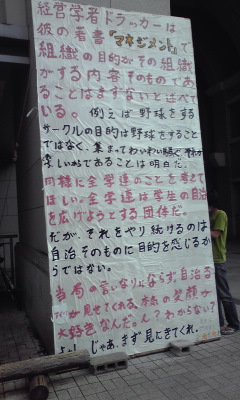 経営学者ドラッカーは
彼の著書『マネジメント』で
組織の目的がその組織
がする内容そのものであ
ることはまずないと述べて
いる。例えば野球をする
サークルの目的は野球をすること
ではなく、集まってわいわい騒ぐ
楽しいからであることは明白だ。
同様に全学連のことを考えて
ほしい。全学連は学生の自治
を広げようとする団体だ。
だが、それをやり続けるのは
自治そのものに目的を感じるか
らではない。
当局の言いなりにならず、自治る
が見せてくれる、本物の笑顔が
大好きなんだ。ん？わからない？
よし、じゃあ、まず見にきてくれ。